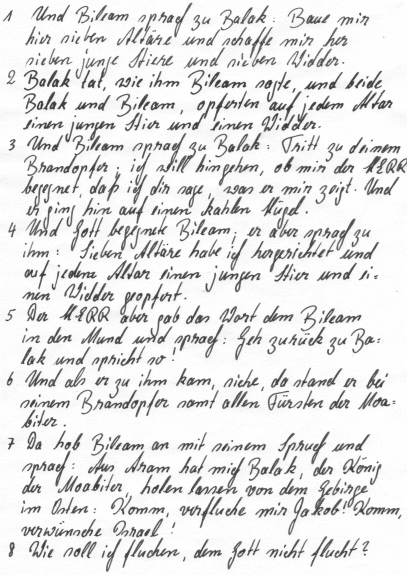 1 Und Bileam sprach zu Balak: Baue mir
hier sieben Altäre und schaffe mir her
sieben junge Stiere und sieben Widder.
2 Balak tat, wie ihm Bileam sagte, und beide
Balak und Bileam, opferten auf jedem Altar
einen jungen Stier und einen Widder.
3 Und Bileam sprach zu Balak: Tritt zu deinem
Brandopfer; ich will hingehen, ob mir der HERR
begegnet, daß ich dir sage, was er mir zeigt. Und
er ging hin auf einen kahlen Hügel.
4 Und Gott begegnete Bileam; er aber sprach zu
ihm: Sieben Altäre habe ich hergerichtet und
auf jedem Altar einen jungen Stier und ei-
nen Widder geopfert.
5 Der HERR aber gab das Wort dem Bileam
in den Mund und sprach: Geh zurück zu Ba-
lak und spricht so!
6 Und als er zu ihm kam, siehe, da stand er bei
seinem Brandopfer samt allen Fürsten der Moa-
biter.
7 Da hob Bileam an mit seinem Spruch und
sprach: Aus Aram hat mich Balak, der König
der Moabiter, holen lassen von dem Gebirge
im Osten: Komm, verfluche mir Jakob! Komm,
verwünsche Israel!
8 Wie soll ich fluchen, dem Gott nicht flucht?